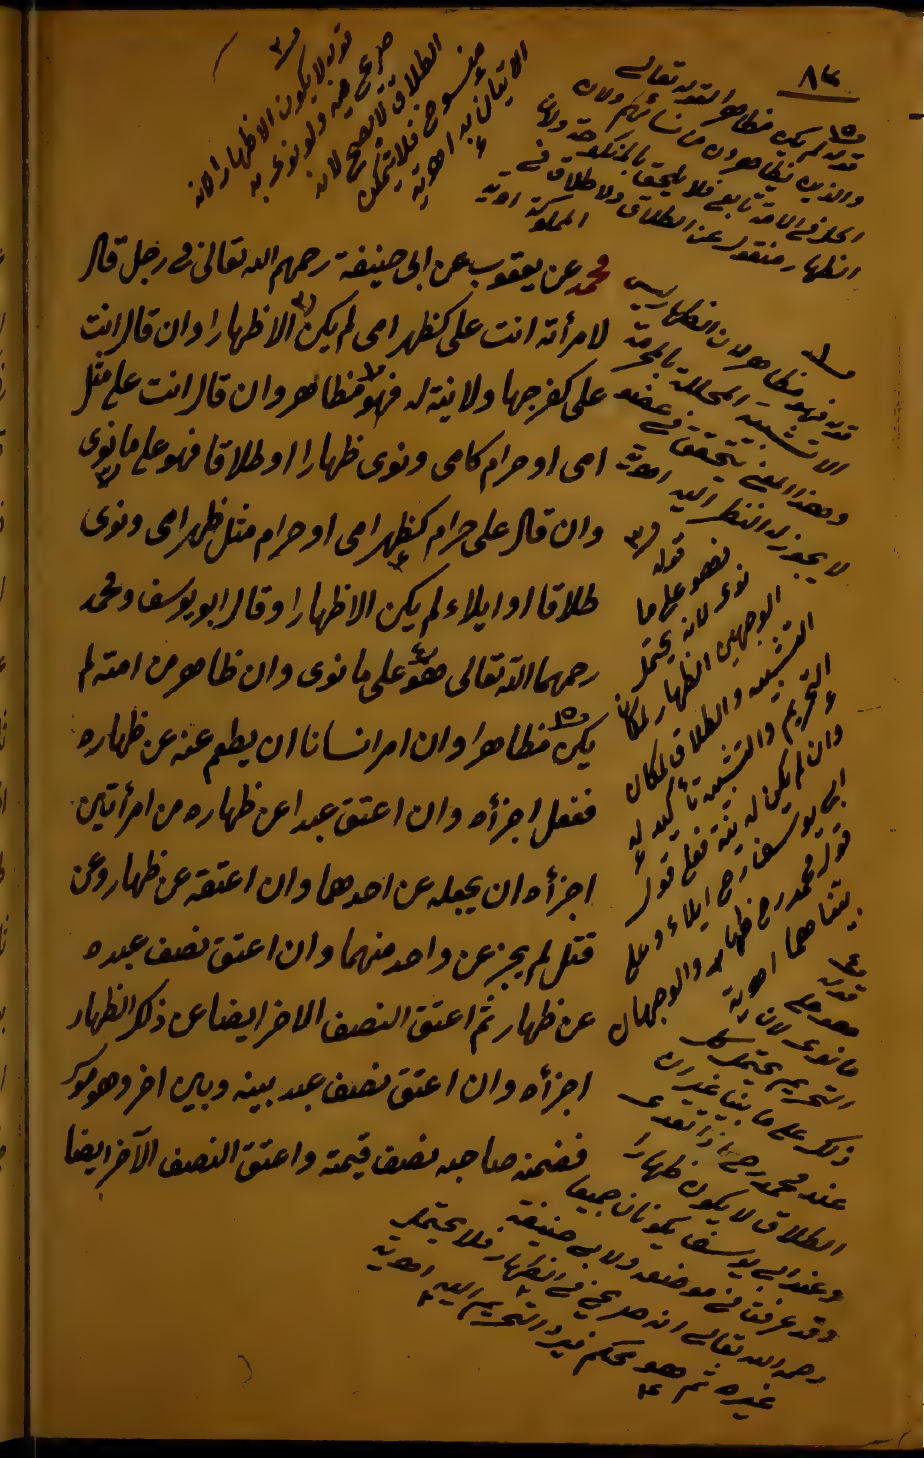 ٨٤
قوله لم يكن مظاهرا لقوله تعالى
والذين يظاهرون من نسائهم ولان
الحل في الامة تابع فلا يلحق بالمنكوحة ولان
الظهار منقول عن الطلاق ولا طلاق في
المملوكة
قوله لا يكون الا ظهارا لانه
صريح فيه ولو نوى به
الطلاق لا يصح لانه
منسوخ فلا يتمكن
الاتيان به
محمد عن يعقوب عن ابي حنيفة رحمهم الله تعالى في رجل قال
لامرأته انت علي كظهر امي لم يكن الا ظهارا وان قال انت
علي كفرجها ولا نية له فهو مظاهر وان قال انت علي مثل
امي او حرام كامي ونوى ظهارا او طلاقا فهو على ما نوى
وان قال علي حرام كظهر امي او حرام مثل ظهر امي ونوى
طلاقا او ايلاء لم يكن الا ظهارا وقال ابو يوسف ومحمد
رحمهما الله تعالى هو على ما نوى وان ظاهر من امته لم
يكن مظاهرا وان امر انسانا ان يطعم عنه عن ظهاره
ففعل اجزأه وان اعتق عبدا عن ظهاره من امرأتين
اجزأه ان يجعله عن احدهما وان اعتقه عن ظهار وعن
قتل لم يجز عن واحد منهما وان اعتق نصف عبده
عن ظهار ثم اعتق النصف الاخر ايضا عن ذلك الظهار
اجزأه وان اعتق نصف عبد بينه وبين اخر وهو موسر
فضمنه صاحبه نصف قيمته واعتق النصف الآخر ايضا
قوله فهو مظاهر لان الظهار ليس
الا تشبيه المحللة بالمحرمة
وهذا المعنى يتحقق في عضو
لا يجوز له النظر اليه
قوله
فهو على ما
نوى لانه يحتمل
الوجهين الظهار لمكان
التشبيه والطلاق لمكان
التحريم والتشبيه تأكيد له
وان لم يكن له نية فعلى قول
ابي يوسف رح ايلاء وعلى
قول محمد رح ظهار والوجهان
بيناهما
قوله
هو على
ما نوى لان
التحريم يحتمل كل
ذلك على ما بينا غير ان
عند محمد رح اذا نوى
الطلاق لا يكون ظهارا
وعند ابي يوسف يكونان جميعا
وقد عرف في موضعه ولابي حنيفة
رحمه الله تعالى انه صريح في الظهار فلا يحتمل
غيره ثم هو محكم فيرد التحريم اليه